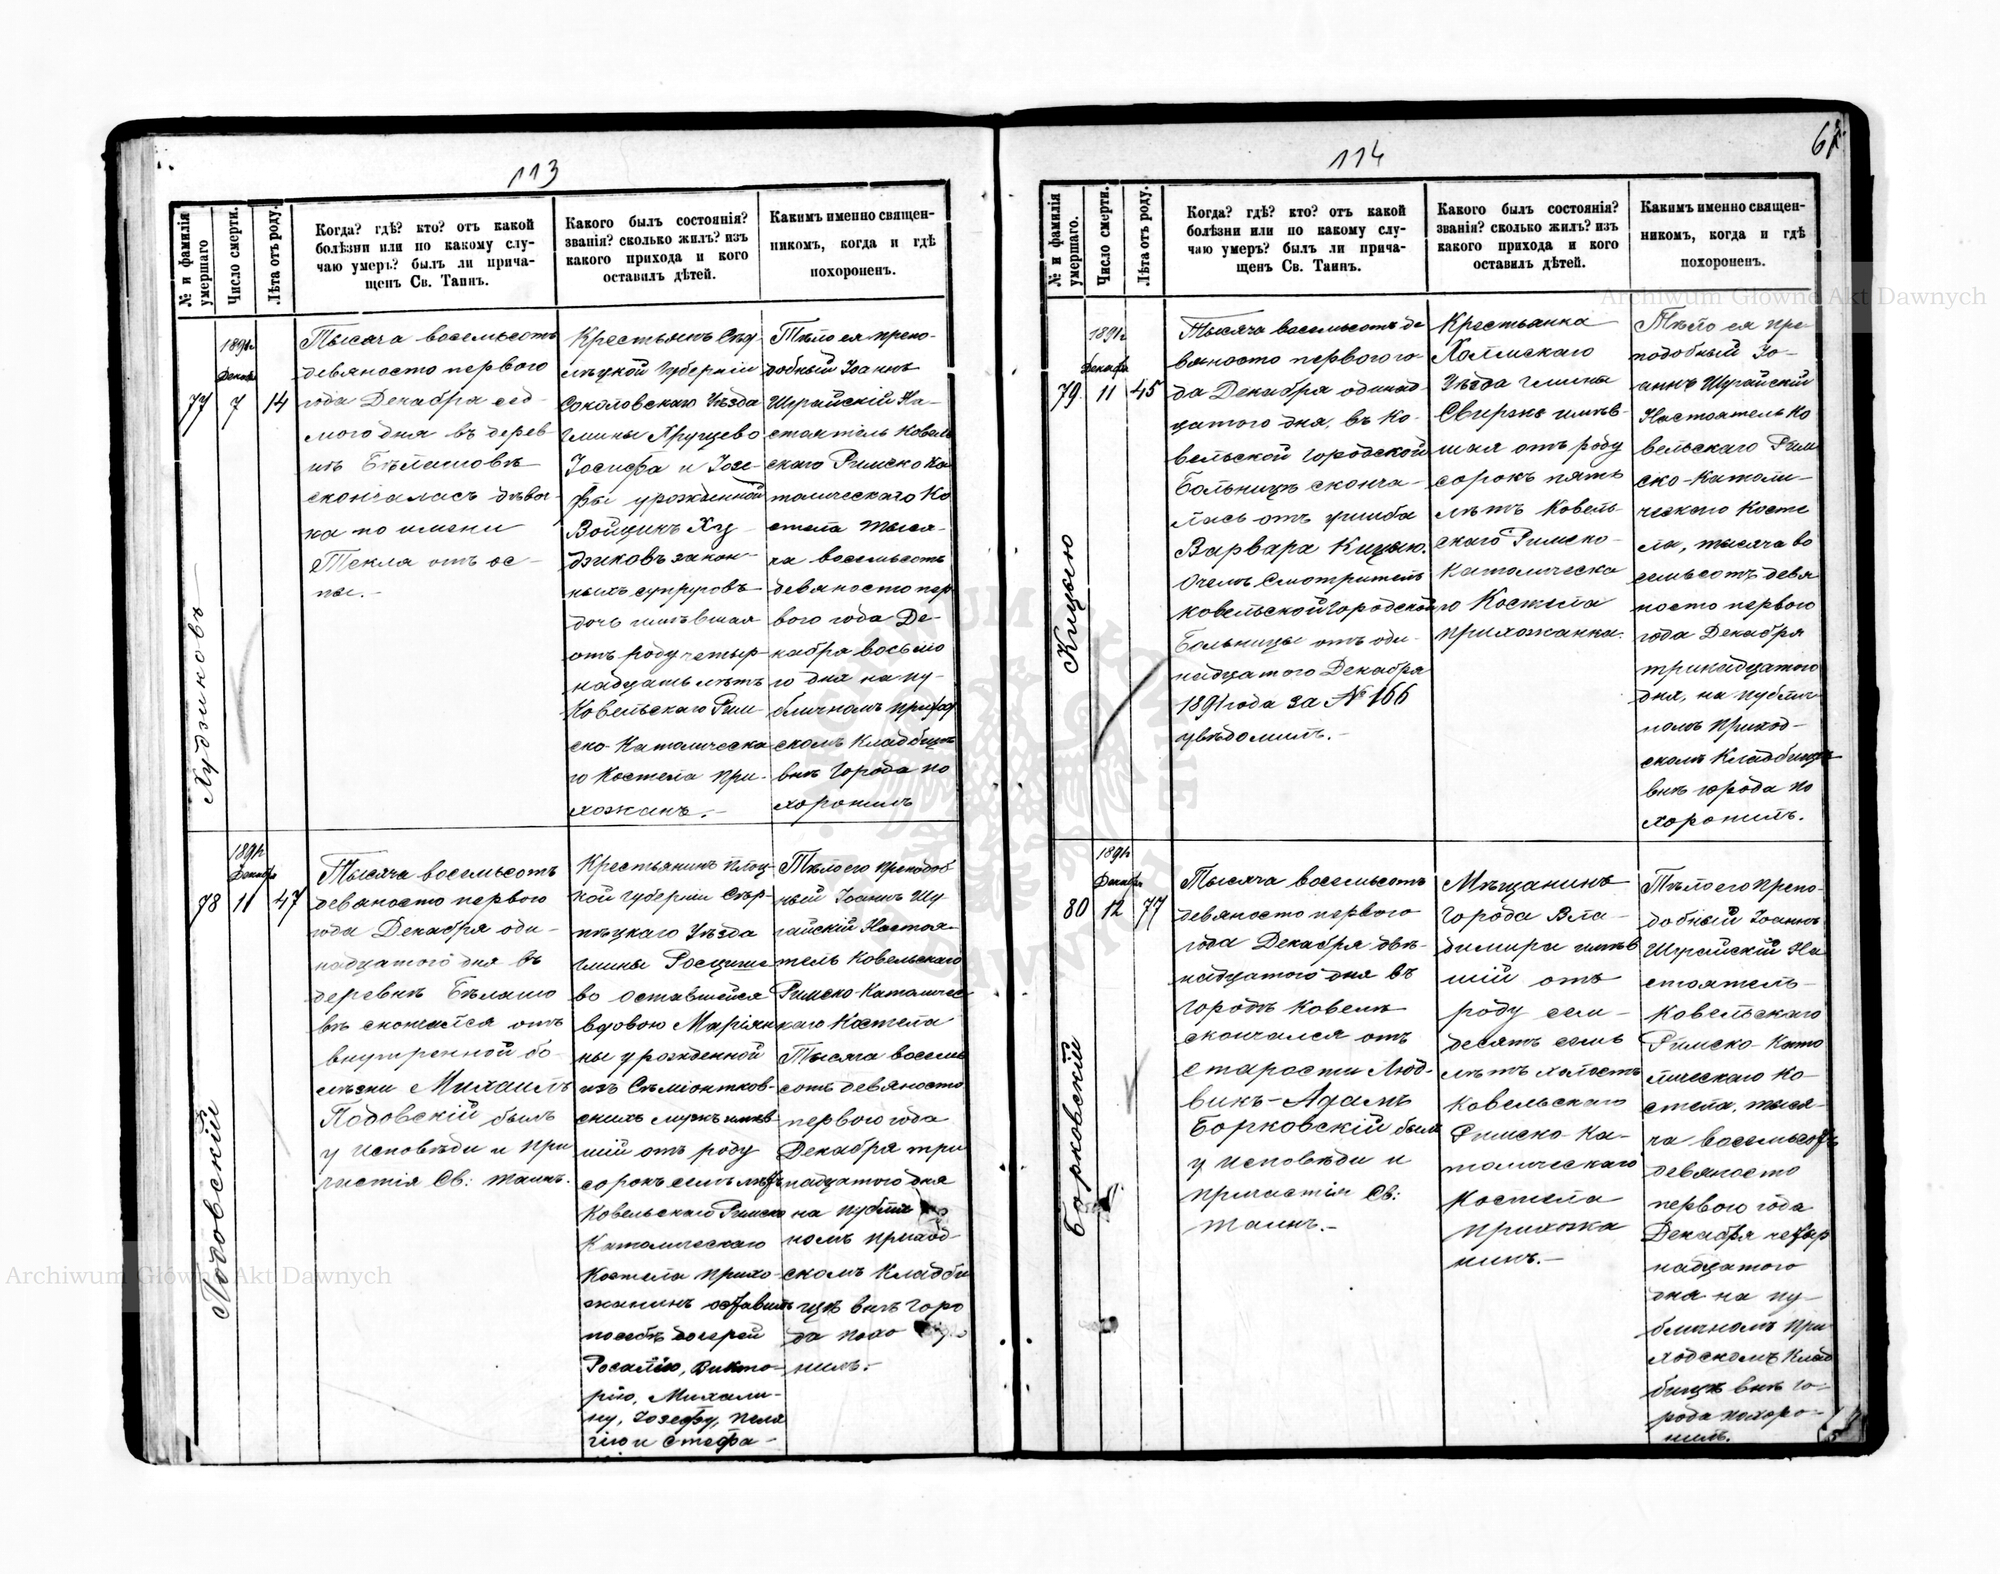 113
№ и фамилія умершаго
Число смерти.
Лѣта отъ роду.
Когда? гдѣ? кто? отъ какой
болѣзни или по какому слу-
чаю умеръ? былъ ли прича-
щенъ Св. Таинъ.
Какого былъ состоянія?
званія? сколько жилъ? изъ
какого прихода и кого
оставилъ дѣтей.
Какимъ именно священ-
никомъ, когда и гдѣ
похороненъ.
77
Худзиковъ
1891 г.
Декабр
7
14
Тысяча восемьсотъ
девяносто перваго
года Декабря сед-
мого дня въ дерев-
нѣ Бѣлашовѣ
скончалась дѣвоч
ка по имени
Текла отъ ос-
пы.-
Крестьянъ Сѣд-
лѣцкой Губерніи
Соколовскаго Уѣзда
Гмины
Іосифа и Іозе-
фы урожденной
Войцикъ Ху-
дзиковъ закон-
ныхъ супруговъ
дочь имѣвшая
отъ роду четыр-
надцать лѣтъ
Ковельскаго Рим-
ско-Католическа
го Костела при-
хожанъ.-
Тѣло ея препо-
добный Іоаннъ
Шугайскій На-
стоятель Ковель
скаго Римско Ка
толическаго Ко
стела тыся-
ча восемьсотъ
девяносто пер
вого года Де-
кабря восьмо
го дня на пу-
бличномъ приход
скомъ Кладбищѣ
внѣ Города по
хоронилъ
78
Подовскій
1891 г.
Декабр
11
47
Тысяча восемьсотъ
девяносто перваго
года Декабря оди-
надцатого дня въ
деревнѣ Бѣлашо
вѣ скончался отъ
внутренной бо-
лѣзни Михаилъ
Подовскій былъ
у Исповѣди и При
частія Св: таинъ.
Крестьянинъ Плоц-
кой Губерніи Сѣр-
пѣцкаго Уѣзда
Гмины Росцише
во оставшейся
вдовою Маріян
ны урожденной
изъ Сѣміонтков-
скихъ мужъ имѣв
шій отъ роду
сорокъ семь лѣтъ
Ковельскаго Римско
Католическаго
Костела прихо-
жанинъ оставилъ
по себѣ дочерей
Розалію, Викто-
рію, Михали-
ну, Іозефу, Пела
гію и Стефа-
Тѣло его преподоб
ный Іоаннъ Шу
гайскій Настоя-
тель Ковельскаго
Римско-Католичес
каго Костела
Тысяча восемь
сотъ девяносто
перваго года
Декабря три
надцатого дня
на публи
номъ приход-
скомъ Кладби
щѣ внѣ Горо
да похо
нилъ.-
114
№ и фамилія умершаго.
Число смерти.
Лѣта отъ роду.
Когда? гдѣ? кто? отъ какой
болѣзни или по какому слу-
чаю умеръ? былъ ли прича-
щенъ Св. Таинъ.
Какого былъ состоянія?
званія? сколько жилъ? изъ
какого прихода и кого
оставилъ дѣтей.
Какимъ именно священ-
никомъ, когда и гдѣ
похороненъ.
79
Кицью
1891 г.
Декабр
11
45
Тысяча восемьсотъ де
вяносто перваго го-
да Декабря одинад-
цатого дня, въ Ко-
вельской Городской
Больницѣ сконча-
лась отъ ушиба
Варвара Кицью.
О чемъ Смотритель
Ковельской Городской
Больницы отъ оди-
надцатого Декабря
1891 года за № 166
увѣдомилъ.-
Крестьянка
Холмскаго
Уѣзда Гмина
Свирже имѣв-
шая отъ роду
сорокъ пять
лѣтъ Ковель-
скаго Римско-
Католическа
го Костела
прихожанка.
Тѣло ея пре-
подобный Іо-
аннъ Шугайскій
Настоятель Ко
вельскаго Рим
ско-Католи-
ческаго Косте
ла, тысяча во
семьсотъ девя
носто первого
года Декабря
тринадцатого
дня, на публич
номъ приход-
скомъ Кладбищѣ
внѣ города по
хоронилъ.
80
Борковскій
1891 г.
Декабр
12
77
Тысяча восемьсотъ
девяносто перваго
года Декабря двѣ-
надцатого дня въ
Городѣ Ковелѣ
скончался отъ
старости Люд-
викъ-Адамъ
Борковскій былъ
у Исповѣди и
причастія Св:
таинъ.-
Мѣщанинъ
Города Вла-
димира имѣв
шій отъ
роду сем-
десятъ семь
лѣтъ холостъ
Ковельскаго
Римско-Ка-
толическаго
Костела
прихожа
нинъ.-
Тѣло его препо-
добный Іоаннъ
Шугайскій На
стоятель-
Ковельскаго
Римско-Като
лическаго Ко-
стела, тыся-
ча восемьсотъ
девяносто
перваго года
Декабря четыр
надцатого
дня на пу-
бличномъ при-
ходскомъ Клад
бищѣ внѣ го-
рода похоро-
нилъ.
Archiwum Główne Akt Dawnych
Archiwum Główne Akt Dawnych